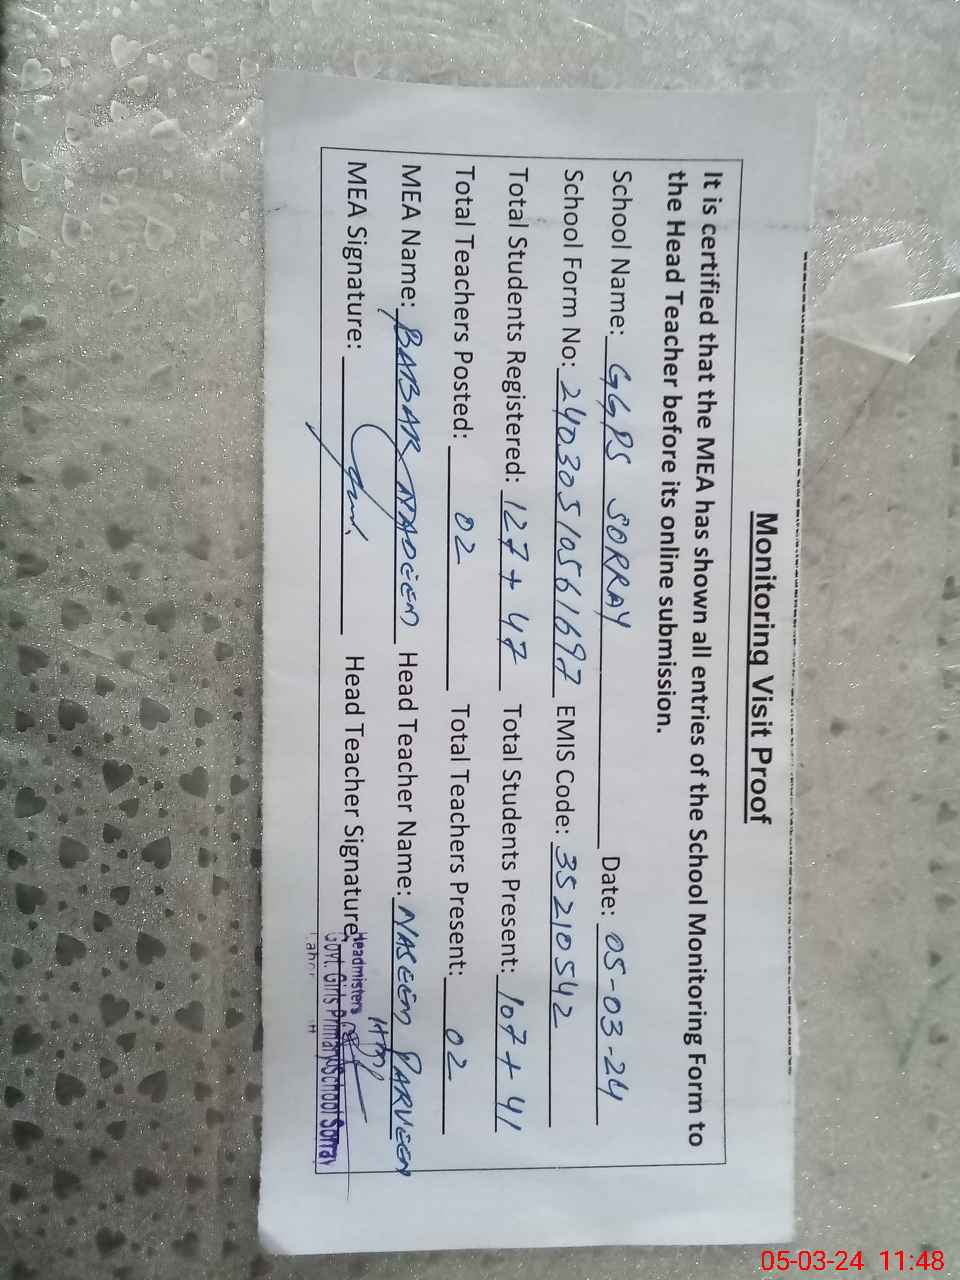 Monitoring Visit Proof
It is certified that the MEA has shown all entries of the School Monitoring Form to
the Head Teacher before its online submission.
School Name: GGPS SORRAY Date: 05-03-24
School Form No: 24030510561697 EMIS Code: 35210542
Total Students Registered: 127 + 47 Total Students Present: 107 + 41
Total Teachers Posted: 02 Total Teachers Present: 02
MEA Name: BABAR Head Teacher Name: NASEEM PARVEEN
MEA Signature: Head Teacher Signature
Headmisters
Govt. Girls Primary School Sorray
05-03-24 11:48